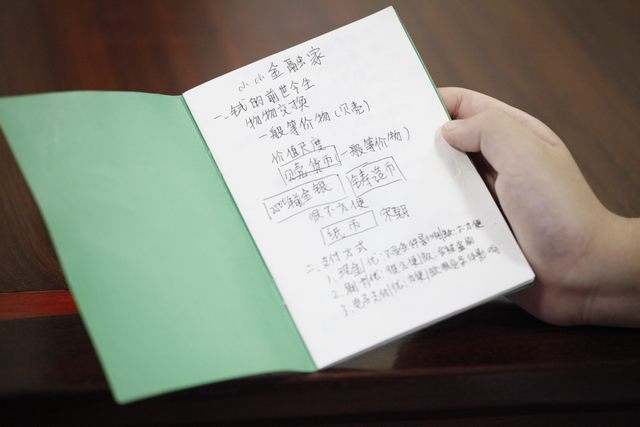 小小金融家
一、钱的前世今生
物物交换
一般等价物(贝壳)
价值尺度
贝壳货币 一般等价物)
金银 铸造币
很不方便
纸币 宋朝
二、支付方式
1、现金(优:不受信号影响|缺:不方便
2、刷卡(优:较方便|缺:
3、电子支付(优:方便|缺:信号影响